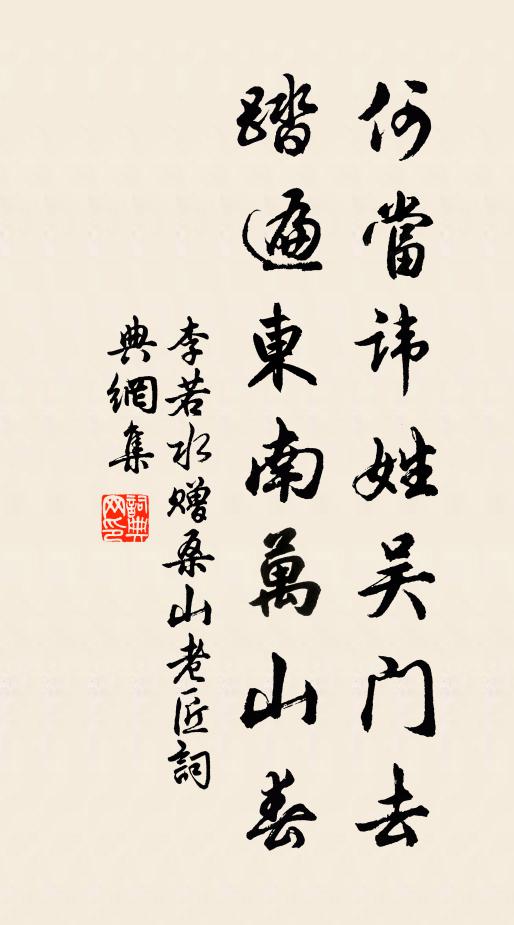 何當諱姓吴门去
踏遍東南萬山春
李若水赠桑山老匠詞
典網集
詞典网印